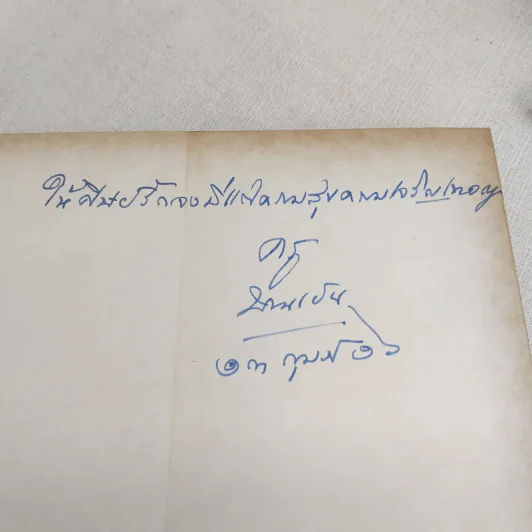 ให้ศิษย์รักจงมีแต่ความสุขความเจริญเทอญ
ครู
๑๓ กุมภ์ ๒๖